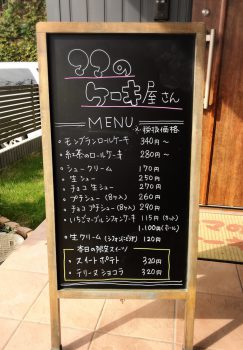 ママの
ケーキ屋さん
MENU ※税抜価格
・モンブランロールケーキ 340円～
・紅茶のロールケーキ 280円～
・シュークリーム 170円
・生シュー 250円
・チョコ生シュー 270円
・プチシュー(8ヶ入) 260円
・チョコプチシュー(8ヶ入) 290円
・いちごマーブルシフォンケーキ 115円(カット)
1,100円(ホール)
・生クリーム(シフォンにピッタリ) 120円
本日の限定スイーツ
・スイートポテト 320円
・テリーヌショコラ 320円